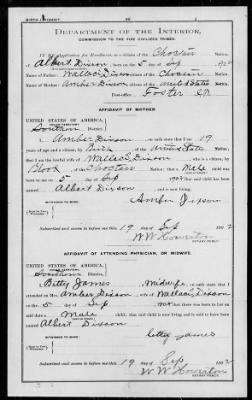 DEPARTMENT OF THE INTERIOR,
COMMISSION TO THE FIVE CIVILIZED TRIBES.
IN RE Application for Enrollment, as a citizen of the Choctaw Nation,
of Albert Dixson, born on the 5 day of Sep, 1902
Name of Father: Wallace Dixson a citizen of the Choctaw Nation.
Name of Mother: Amber Dixson a citizen of the United States Nation.
Post-office Foster I.T.
AFFIDAVIT OF MOTHER.
UNITED STATES OF AMERICA,
INDIAN TERRITORY,
Southern District.
I, Amber Dixson, on oath state that I am 19
years of age and a citizen, by of the United States
that I am the lawful wife of Wallace Dixson, who is a citizen, by
Blood of the Choctaw Nation; that a Male child was
born to me on 5 day of Sep, 1902, that said child has been
named Albert Dixson, and is now living.
Amber Dixson
Subscribed and sworn to before me this 19 day of Sep, 1902
NOTARY PUBLIC.
AFFIDAVIT OF ATTENDING PHYSICIAN, OR MIDWIFE.
UNITED STATES OF AMERICA,
INDIAN TERRITORY,
Southern District.
I, Betty James, a Midwife, on oath state that I
attended on Mrs. Amber Dixson, wife of Wallace Dixson
on the 5 day of Sep, 1902, that there was born to her on said date a
Male child; that said child is now living and is said to have been
named Albert Dixson
betty james
Subscribed and sworn to before me this 19 day of Sep, 1902
NOTARY PUBLIC.